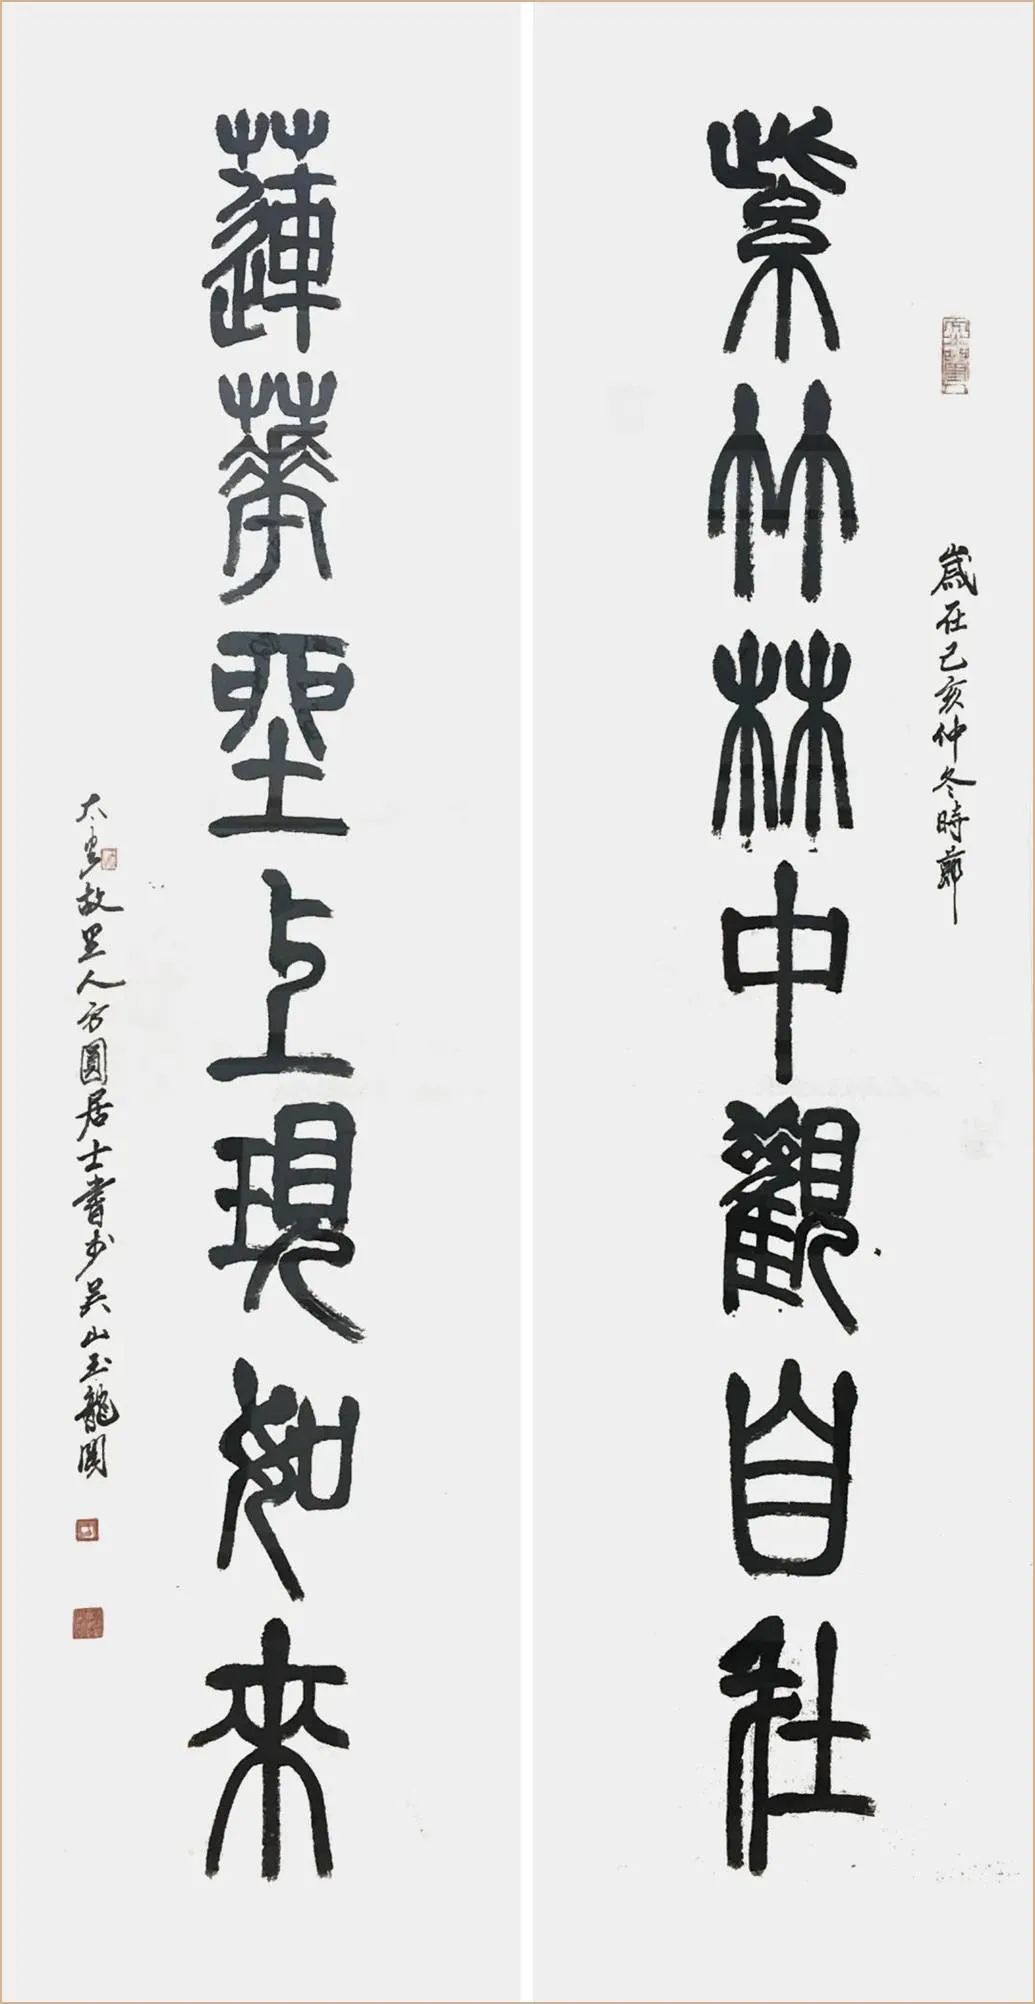 歲在己亥仲冬時節
紫竹林中觀自在
蓮華坐上現如來
太故里人方圓居士書於吳山玉龍閣